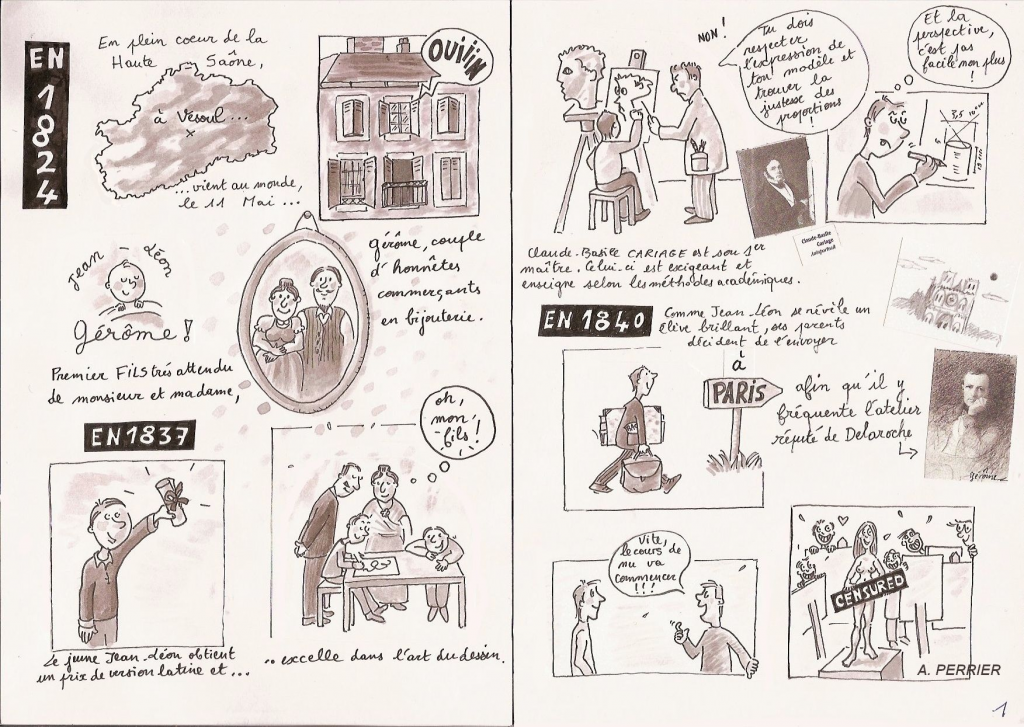 EN 1824
En plein coeur de la
Haute Saône,
à Vesoul...
...vient au monde,
le 11 Mai...
OUIIIN
Jean Léon
Gérôme !
Premier FILS très attendu
de monsieur et madame,
Gérôme, couple
d'honnêtes
commerçants
en bijouterie.
EN 1837
Le jeune Jean-Léon obtient
un prix de version latine et...
oh,
mon
fils !
.. excelle dans l'art du dessin.
NON !
Tu dois
respecter
l'expression de
ton modèle et
trouver la
justesse des
proportions
!
Et la
perspective,
c'est pas
facile non plus
!
3,5
Claude-Basile
Cariage
Claude-Basile CARIAGE est son 1er
maître. Celui-ci est exigeant et
enseigne selon les méthodes académiques.
EN 1840
Comme Jean-Léon se révèle un
élève brillant, ses parents
décident de l'envoyer
à
PARIS
afin qu'il y
fréquente l'atelier
réputé de Delaroche
Gérôme
Vite,
le cours de
nu va
commencer
!!!
CENSURED
A. PERRIER
1